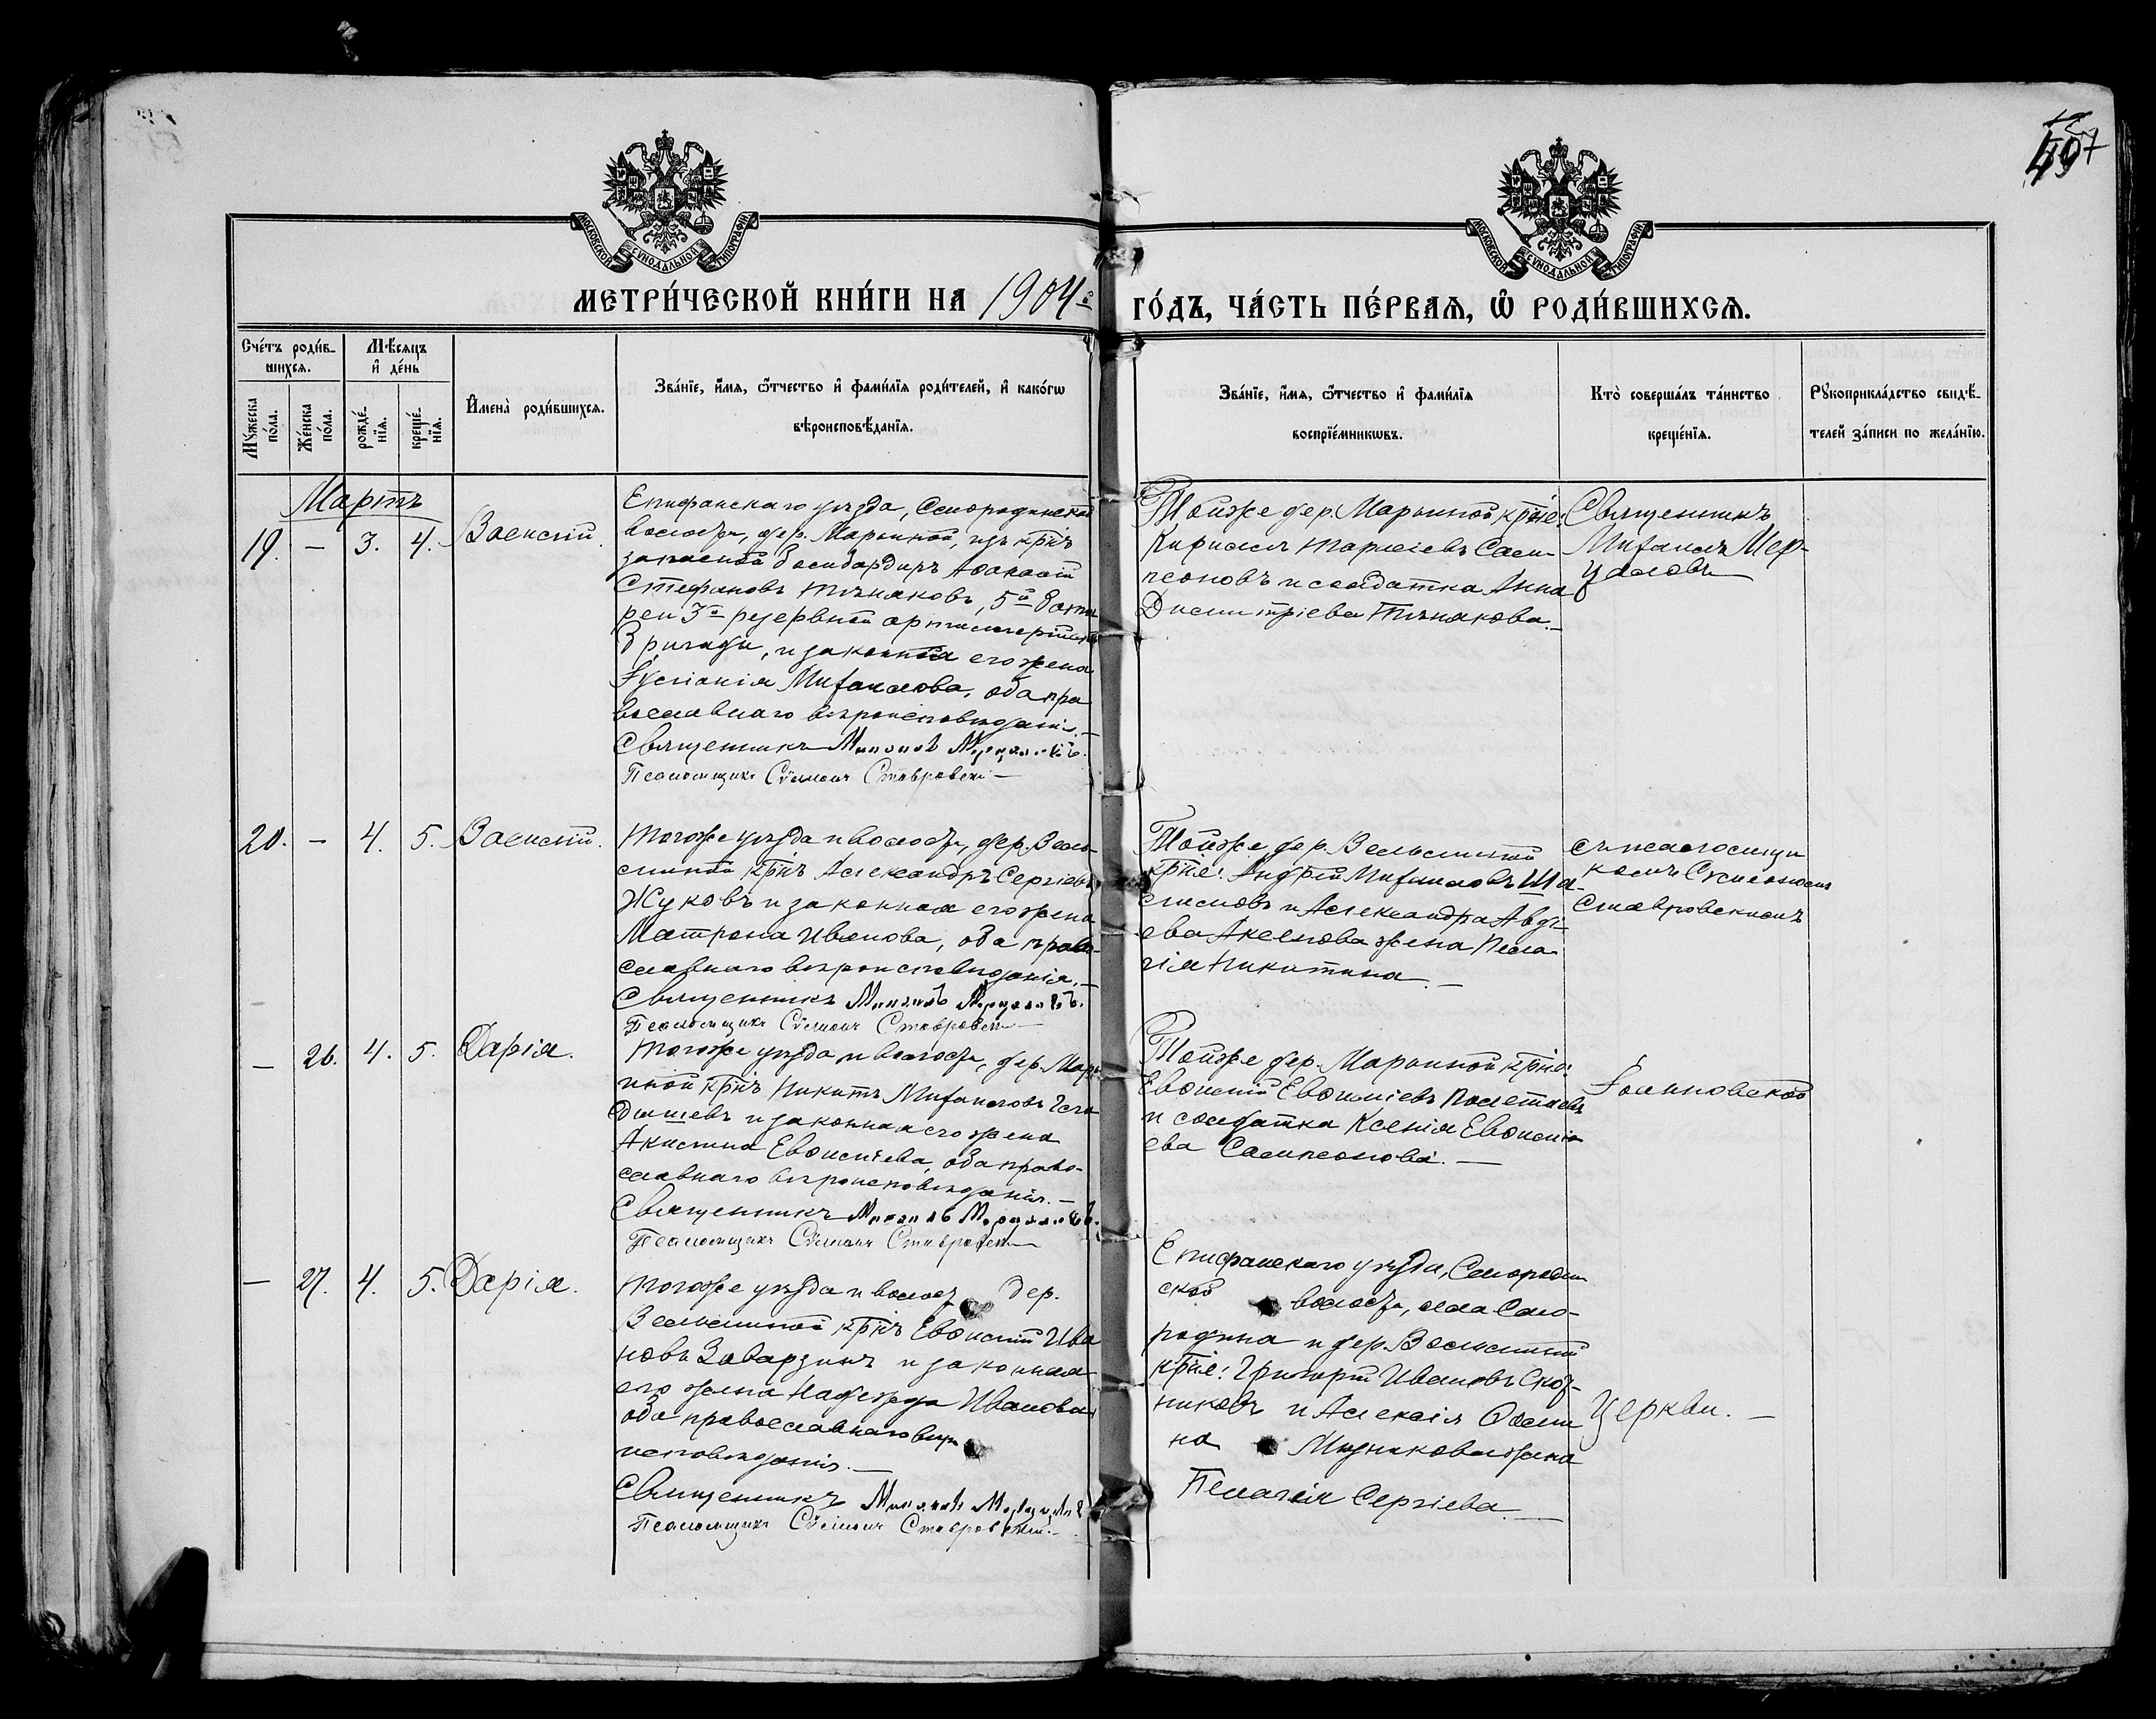 497
МОСКОВСКОЙ СѴНОДАЛЬНОЙ ТИПОГРАФІИ
МОСКОВСКОЙ СѴНОДАЛЬНОЙ ТИПОГРАФІИ
МЕТРИ́ЧЕСКОЙ КНИ́ГИ НА 1904й ГО́ДЪ, ЧА́СТЬ ПЕ́РВАѦ, Ѡ҆ РОДИ́ВШИХСѦ.
Сче́тъ роди́в-
шихсѧ.
Мѣ́сяцъ
и҆ де́нь
Мꙋ́жеска
по́ла.
Же́нска
по́ла.
рожде́-
нїѧ.
креще́-
нїѧ.
И҆мена̀ роди́вшихсѧ.
Зва́нїе, и҆́мѧ, ѻ҆́тчество и҆ фами́лїѧ роди́телей, и҆ како́гѡ
вѣроисповѣ́данїѧ.
Зва́нїе, и҆́мѧ, ѻ҆́тчество и҆ фами́лїѧ
воспрїе́мникѡвъ.
Кто̀ соверша́лъ та́инство
креще́нїѧ.
Рꙋкоприкла́дство свидѣ́-
телей за́писи по жела́нїю.
Мартъ
19. — 3. 4. Василій.
Епифанскаго уѣзда, Смородинской
волости, дер. Марьиной, изъ кр҃нъ
запасной бомбардиръ Аѳанасій
Стефановъ Пчняковъ, 5й бата
реи 3й резервной артиллерійск
бригады, и законная его жена
Михаилова, оба пра
вославнаго вѣроисповѣданія.—
Священникъ Михаилъ Мерцаловъ.
Псаломщикъ Сѵмеонъ Ставровскій—
Тойже дер. Марьиной кр҃не:
Кириллъ Сам-
псоновъ и солдатка Анна
Димитріева Пчнякова.—
Священникъ
Михаилъ Мер-
цаловъ
20. — 4. 5. Василій.
Тогоже уѣзда и волости, дер. Вель-
миной кр҃нъ Александръ Сергіевъ
Жуковъ и законная его жена
Матрона Иванова, оба право-
славнаго вѣроисповѣданія.—
Священникъ Михаилъ Мерцаловъ.
Псаломщикъ Сѵмеонъ Ставровскій—
Тойже дер. Вельминой
кр҃не: Андрей Михаиловъ Ша-
и Александра Авді
ева жена Пела
гія Никитина.—
съ псаломщи
комъ Симеономъ
Ставровскимъ
— 26. 4. 5. Дарія.
Тогоже уѣзда и волости, дер. Марь
иной кр҃нъ Никита Михаиловъ
и законная его жена
Акилина Евѳиміева, оба право-
славнаго вѣроисповѣданія.—
Священникъ Михаилъ Мерцаловъ.
Псаломщикъ Сѵмеонъ Ставровскій
Тойже дер. Марьиной кр҃не:
Евѳимій Евѳиміевъ Полетаевъ
и солдатка Ксенія Евѳимі
ева Сампсонова.—
Іоанновской
— 27. 4. 5. Дарія.
Тогоже уѣзда и волост дер.
Вельминой кр҃нъ Евѳимій Ива
новъ Заварзинъ и законная
его жена Надежда Иванова
оба православнаго вѣро
исповѣданія.—
Священникъ Михаилъ Мерцаловъ
Псаломщикъ Сѵмеонъ Ставровскій.—
Епифанскаго уѣзда, Смородин
ской волости, села Смо-
родина и дер. Вельминой
кр҃не: Григорій Ивановъ
и Алексія
на жена
Пелагія Сергіева.—
Церкви.—